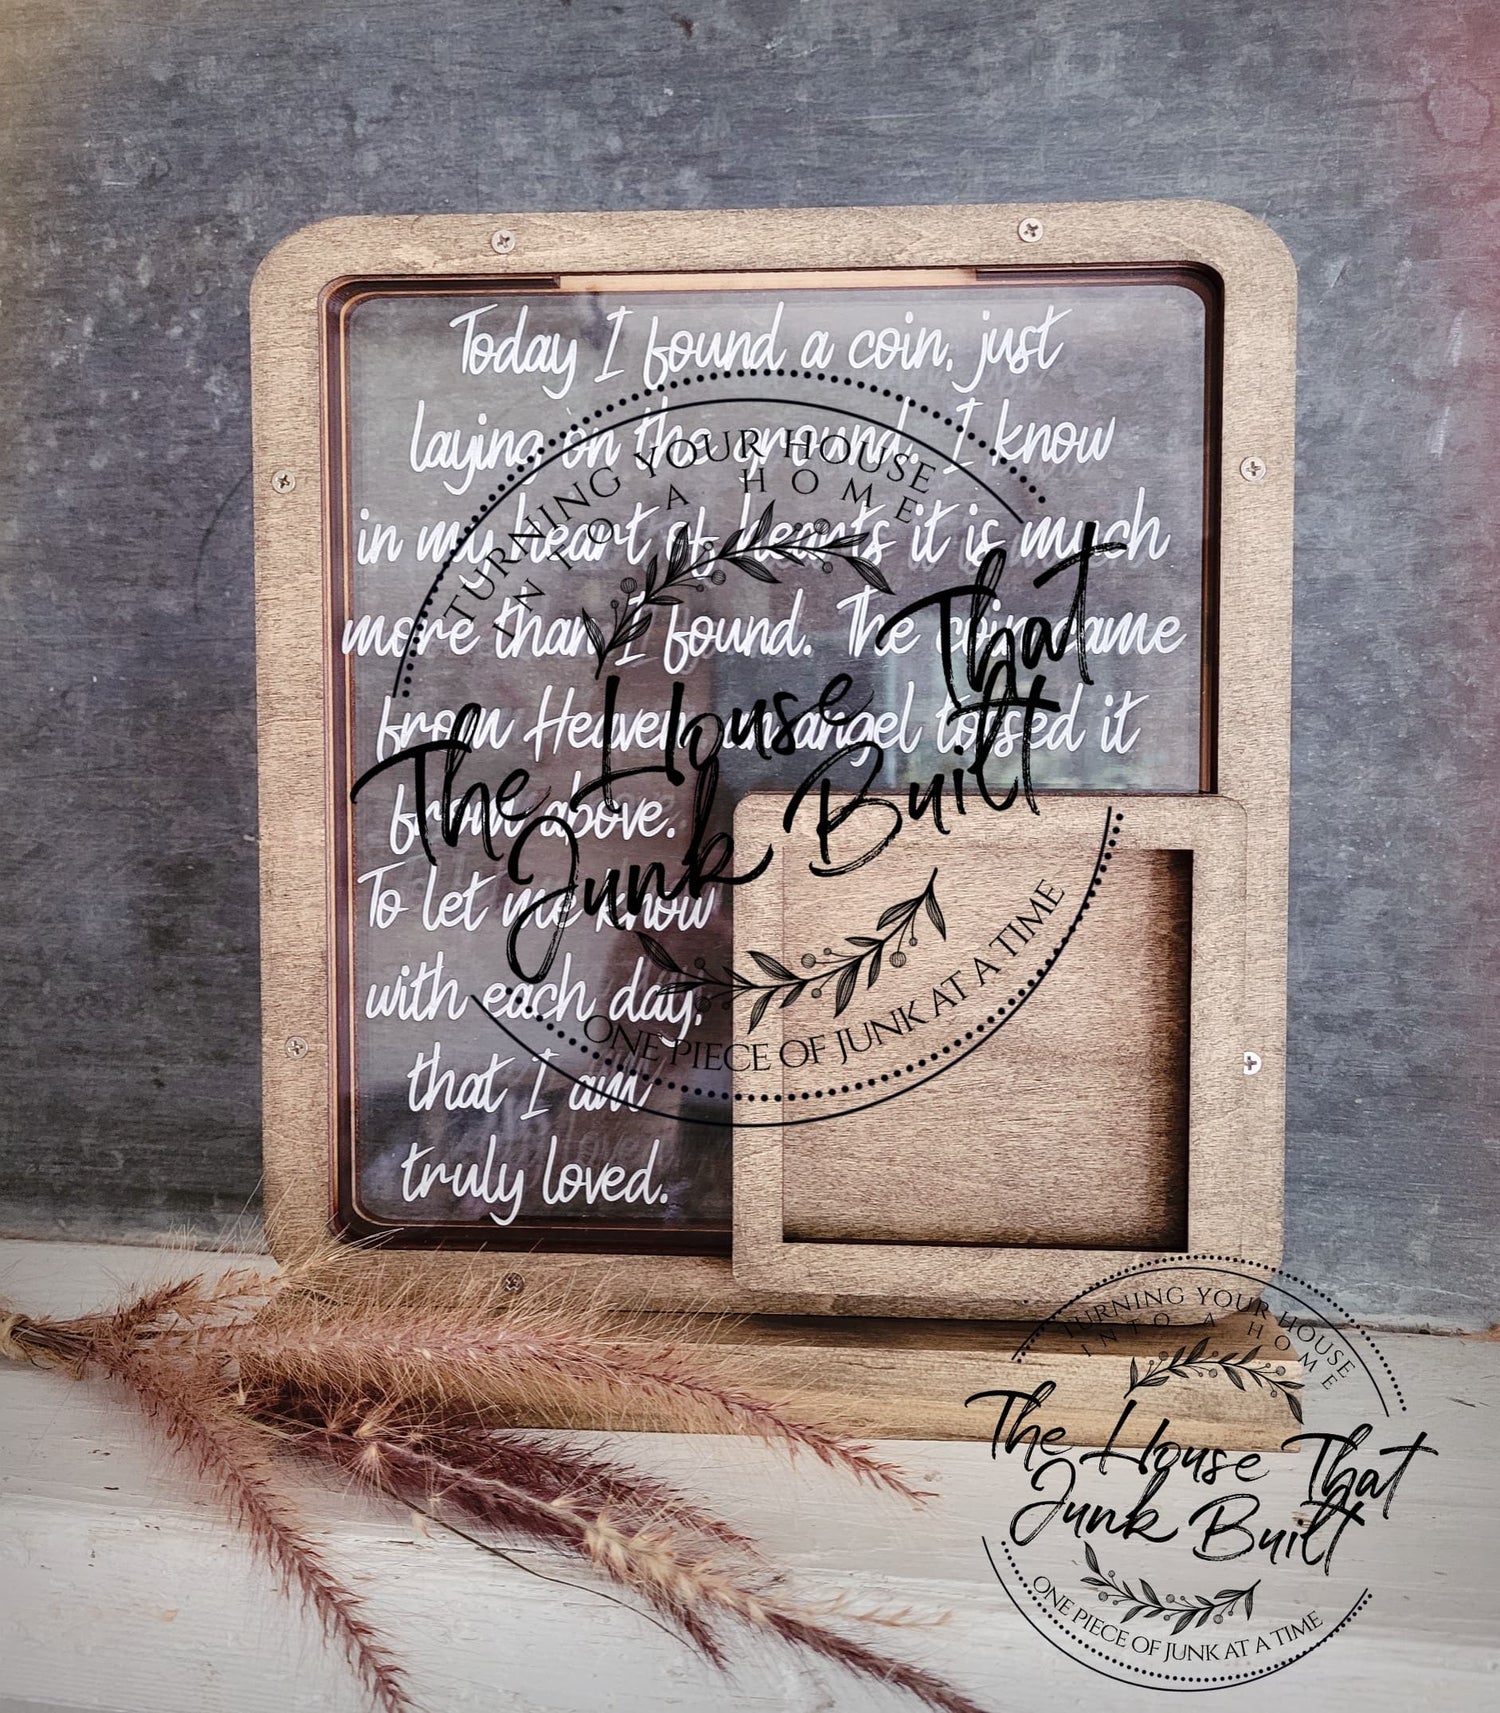 Today I found a coin, just
laying on the ground. I know
in my heart of hearts it is much
more than I found. The coin came
from Heaven, an angel tossed it
from above.
To let me know
with each day,
that I am
truly loved.
TURNING YOUR HOUSE
INTO A HOME
The House That
Junk Built
ONE PIECE OF JUNK AT A TIME
TURNING YOUR HOUSE
INTO A HOME
The House That
Junk Built
ONE PIECE OF JUNK AT A TIME